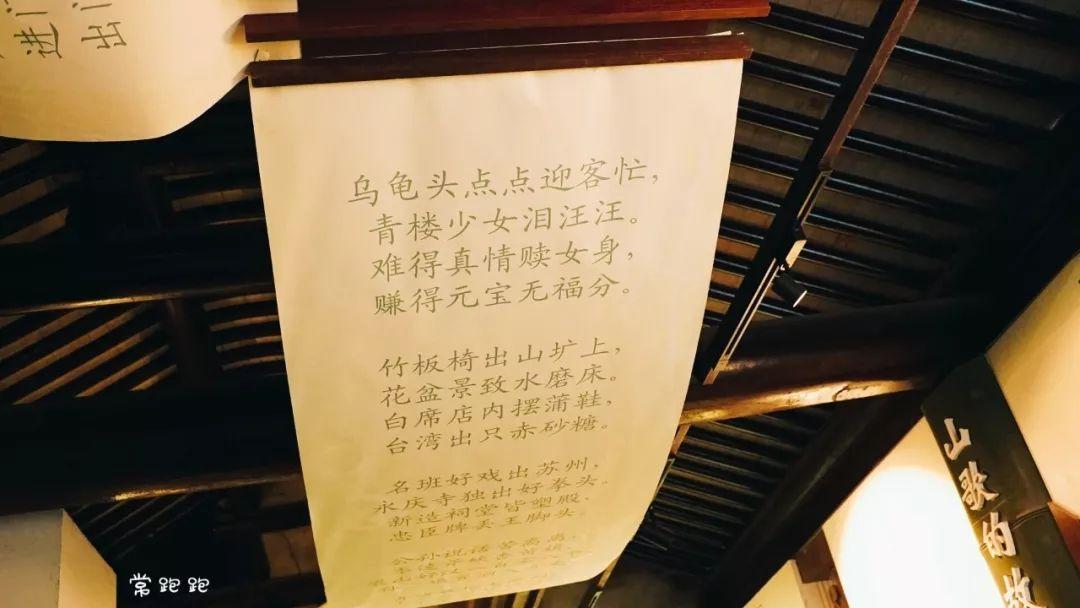 进门
出门
乌龟头点点迎客忙，
青楼少女泪汪汪。
难得真情赎女身，
赚得元宝无福分。
竹板椅出山圹上，
花盆景致水磨床。
白席店内摆蒲鞋，
台湾出只赤砂糖。
名班好戏出苏州，
永庆寺独出好拳头。
新造祠堂皆塑殿，
忠臣牌丢王脚头。
山歌的故
常跑跑